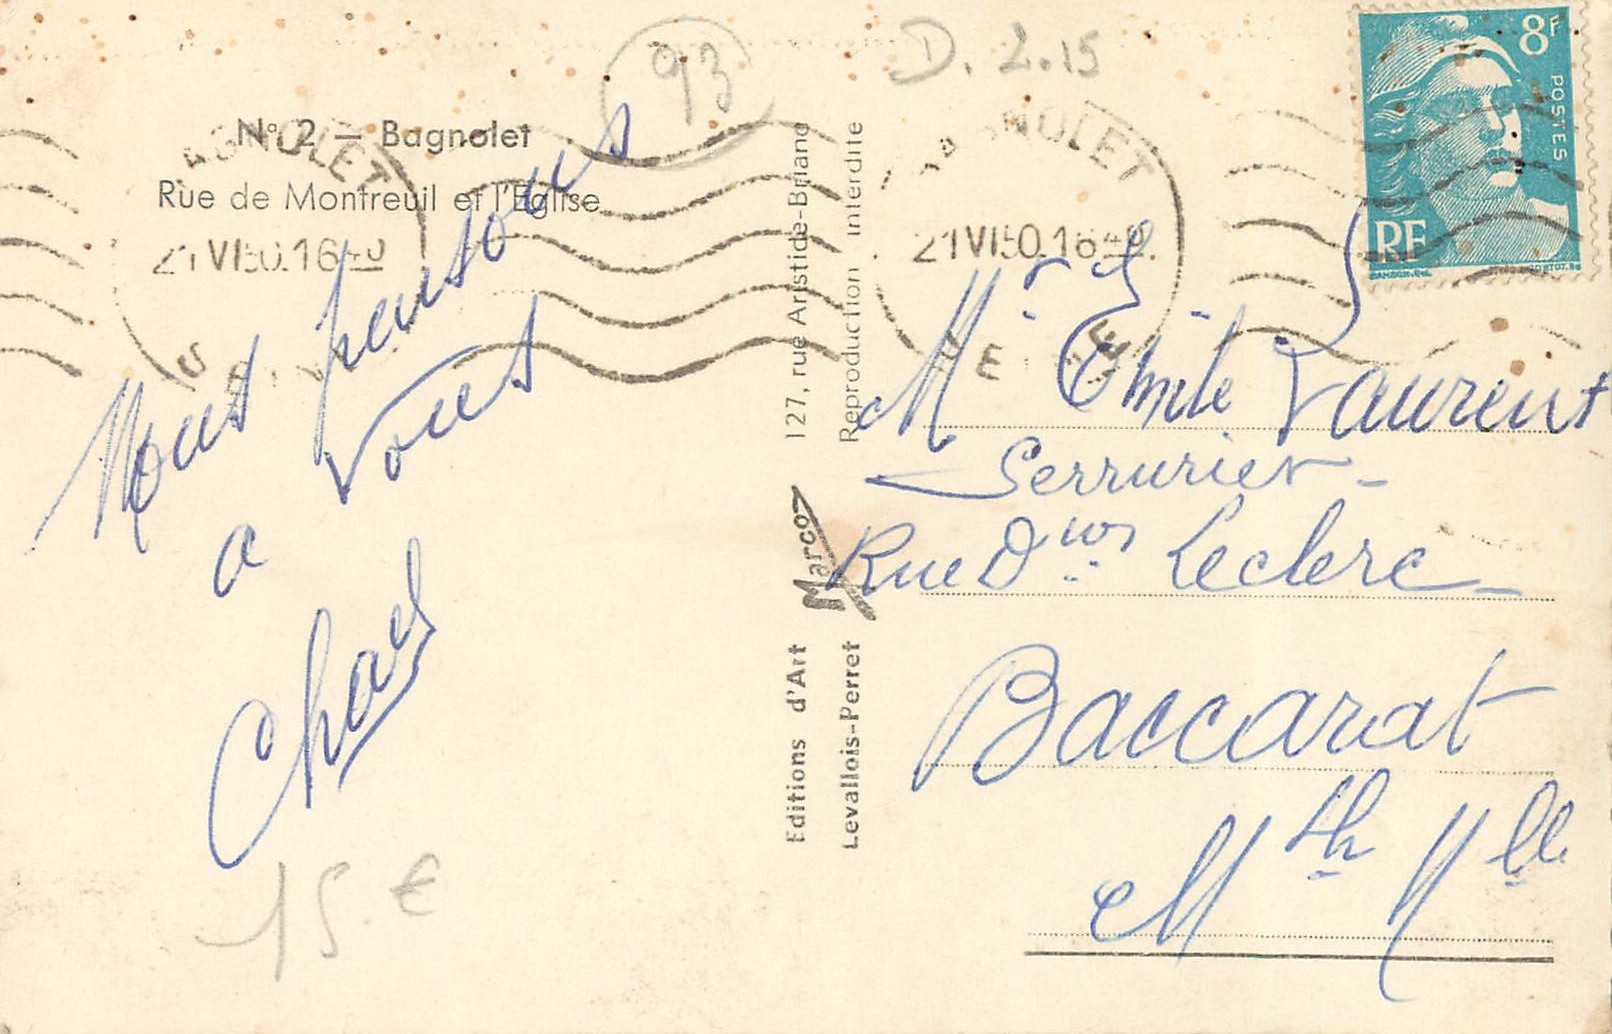 93
D. 2.15
N° 2 — Bagnolet
Rue de Montreuil et l'Eglise
BAGNOLET
21 VI 50. 16 40
SEINE
Nous pensons
a vous
15 €
127, rue Aristide-Briand
Reproduction interdite
Marco
Editions d'Art
Levallois-Perret
BAGNOLET
21 VI 50. 16 40
SEINE
8F
POSTES
RF
GANDON. DEL.
Mr Emile Laurent
Serrurier -
Rue Dion Leclerc -
Baccarat
Mth Mlle